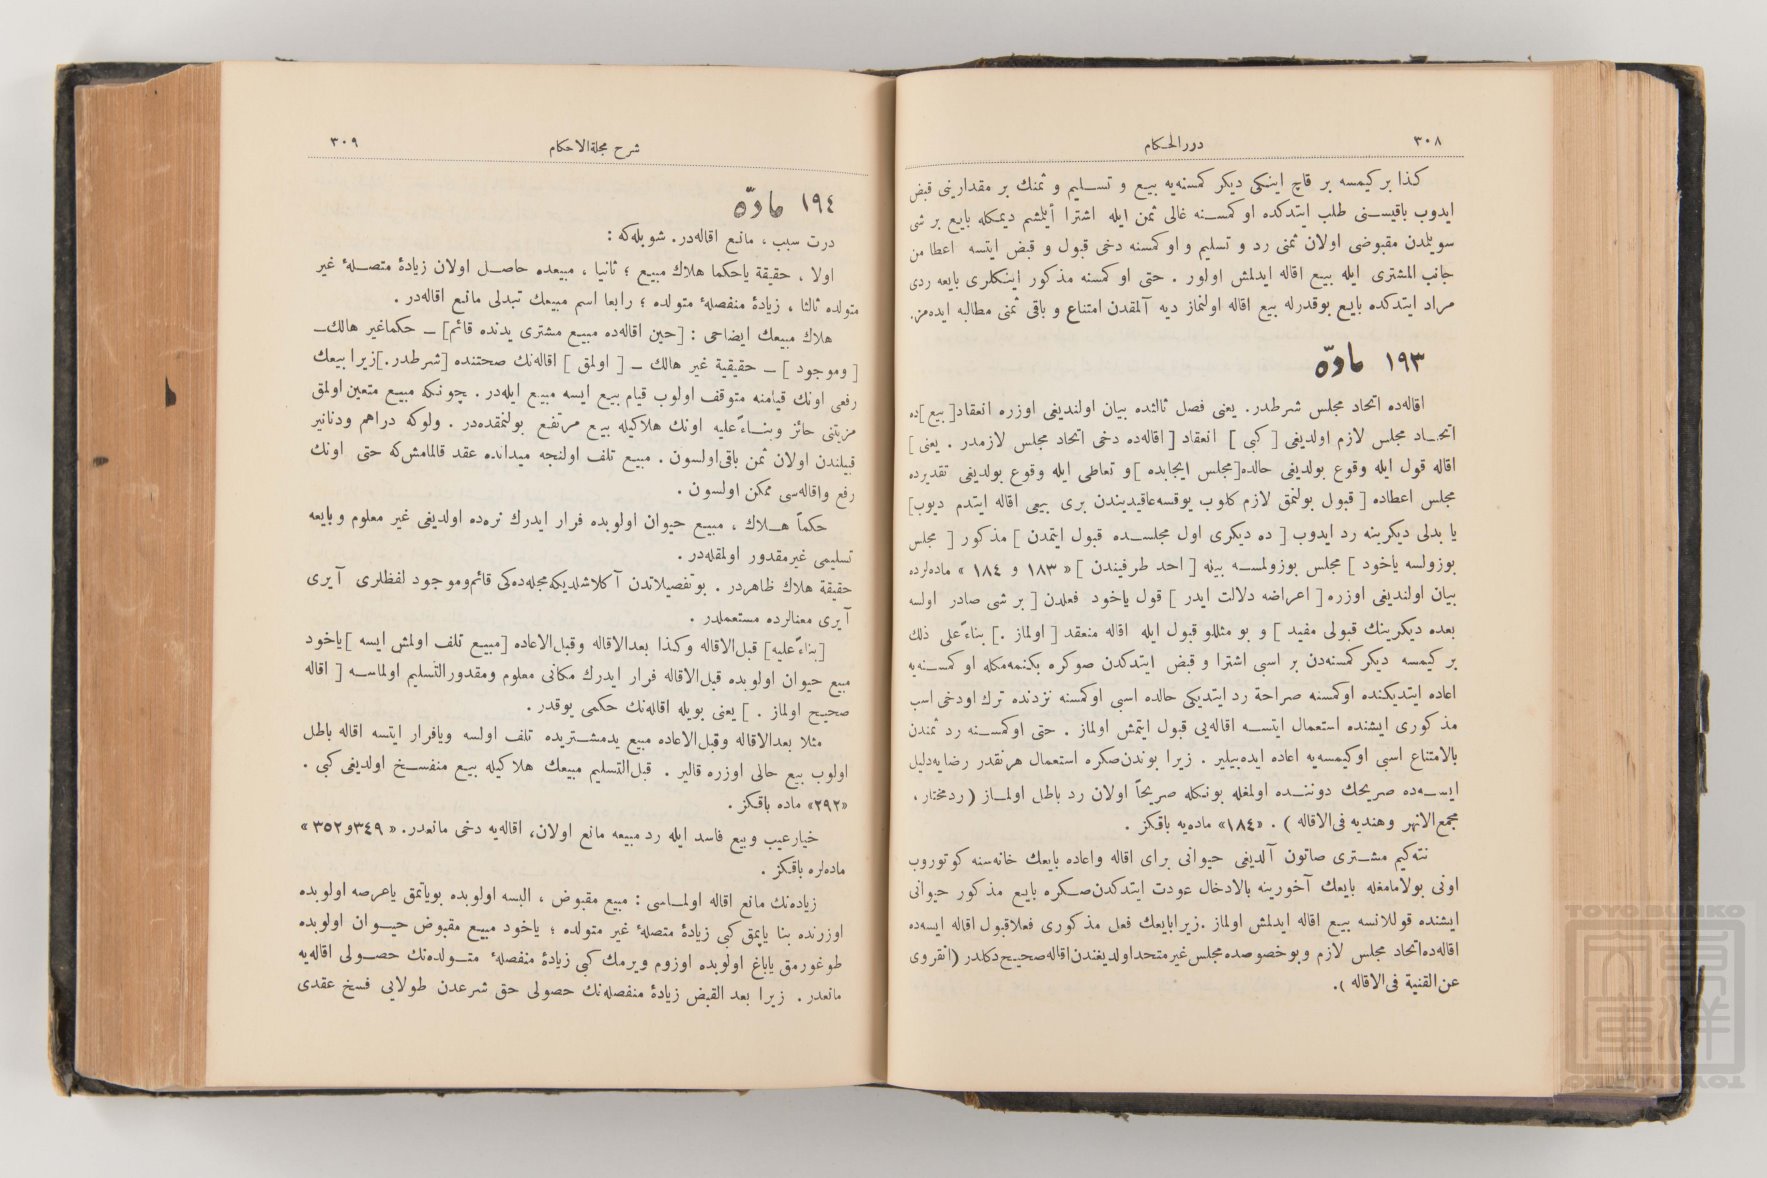 ٣٠٨
دررالحكام
كذا بر كيمسه بر قاچ اينكى ديكر كمسنه‌يه بيع و تسليم و ثمنك بر مقدارينى قبض
ايدوب باقيسنى طلب ايتدكده او كمسنه غالى ثمن ايله اشترا أيلمشم ديمكله بايع بر شى
سويلمدن مقبوضى اولان ثمنى رد و تسليم و او كمسنه دخى قبول و قبض ايتسه اعطا من
جانب المشترى ايله بيع اقاله ايدلمش اولور . حتى او كمسنه مذكور اينكلرى بايعه ردى
مراد ايتدكده بايع بوقدرله بيع اقاله اولنماز ديه آلمقدن امتناع و باقى ثمنى مطالبه ايده‌مز.
١٩٣ مادّه
اقاله‌ده اتحاد مجلس شرطدر. يعنى فصل ثالثده بيان اولنديغى اوزره انعقاد[بيع]ده
اتحاد مجلس لازم اولديغى [ كبى ] انعقاد [ اقاله‌ده دخى اتحاد مجلس لازمدر . يعنى ]
اقاله قول ايله وقوع بولديغى حالده[مجلس ايجابده ]و تعاطى ايله وقوع بولديغى تقديرده
مجلس اعطاده [ قبول بولنمق لازم كلوب يوقسه‌عاقديندن برى بيعى اقاله ايتدم ديوب]
يا بدلى ديكرينه رد ايدوب [ ده ديكرى اول مجلسده قبول ايتمدن ] مذكور [ مجلس
بوزولسه ياخود ] مجلس بوزولمسه بينه [ احد طرفيندن ] « ١٨٣ و ١٨٤ » ماده‌لرده
بيان اولنديغى اوزره [ اعراضه دلالت ايدر ] قول ياخود فعلدن [ بر شى صادر اولسه
بعده ديكرينك قبولى مفيد ] و بو مثللو قبول ايله اقاله منعقد [ اولماز .] بناءً على ذلك
بر كيمسه ديكر كمسنه‌دن بر اسبى اشترا و قبض ايتدكدن صوكره بكنمه‌مكله او كمسنه‌يه
اعاده ايتديكنده اوكمسنه صراحة رد ايتديكى حالده اسبى اوكمسنه نزدنده ترك اودخى اسب
مذكورى ايشنده استعمال ايتسه اقاله‌يى قبول ايتمش اولماز . حتى اوكمسنه رد ثمندن
بالامتناع اسبى اوكيمسه‌يه اعاده ايده‌بيلير . زيرا بوندن‌صكره استعمال هرنقدر رضايه‌دليل
ايسه‌ده صريحك دوننده اولمغله بونكله صريحاً اولان رد باطل اولماز (ردمختار ،
مجمع‌الانهر وهنديه فى‌الاقاله ) . «١٨٤» ماده‌يه باقكز .
نته‌كيم مشترى صاتون آلديغى حيوانى براى اقاله واعاده بايعك خانه‌سنه كوتوروب
اونى بولامامغله بايعك آخورينه بالادخال عودت ايتدكدن‌صكره بايع مذكور حيوانى
ايشنده قوللانسه بيع اقاله ايدلمش اولماز .زيرابايعك فعل مذكورى فعلاقبول اقاله ايسه‌ده
اقاله‌ده‌اتحاد مجلس لازم وبوخصوصده‌مجلس‌غيرمتحداولديغندن‌اقاله‌صحيح‌دكلدر (انقروى
عن‌القنية فى‌الاقاله ).
٣٠٩
شرح مجلةالاحكام
١٩٤ مادّه
درت سبب ، مانع اقاله‌در. شويله‌كه :
اولا ، حقيقة ياحكما هلاك مبيع ؛ ثانيا ، مبيعده حاصل اولان زيادۀ متصلۀ غير
متولده ثالثا ، زيادۀ منفصلۀ متولده ؛ رابعا اسم مبيعك تبدلى مانع اقاله‌در .
هلاك مبيعك ايضاحى : [حين اقاله‌ده مبيع مشترى يدنده قائم] ـ حكماغير هالك ـ
[ وموجود ] ـ حقيقية غير هالك ـ [ اولمق ] اقاله‌نك صحتنده [شرطدر.]زيرا بيعك
رفعى اونك قيامنه متوقف اولوب قيام بيع ايسه مبيع ايله‌در . چونكه مبيع متعين اولمق
مزيتنى حائز وبناءً عليه اونك هلاكيله بيع مرتفع بولنمقده‌در . ولوكه دراهم ودنانير
قبيلندن اولان ثمن باقى‌اولسون . مبيع تلف اولنجه ميدانده عقد قالمامش‌كه حتى اونك
رفع واقاله‌سى ممكن اولسون .
حكماً هلاك ، مبيع حيوان اولوبده فرار ايدرك نره‌ده اولديغى غير معلوم وبايعه
تسليمى غيرمقدور اولمقله‌در .
حقيقة هلاك ظاهردر . بوتفصيلاتدن آكلاشلديكه‌مجله‌ده‌كى قائم‌وموجود لفظلرى آيرى
آيرى معنالرده مستعملدر .
[بناءً عليه] قبل‌الاقاله وكذا بعدالاقاله وقبل‌الاعاده [مبيع تلف اولمش ايسه ]ياخود
مبيع حيوان اولوبده قبل‌الاقاله فرار ايدرك مكانى معلوم ومقدورالتسليم اولماسه [ اقاله
صحيح اولماز . ] يعنى بويله اقاله‌نك حكمى يوقدر .
مثلا بعدالاقاله وقبل‌الاعاده مبيع يدمشتريده تلف اولسه ويافرار ايتسه اقاله باطل
اولوب بيع حالى اوزره قالير . قبل‌التسليم مبيعك هلاكيله بيع منفسخ اولديغى كبى .
«٢٩٢» ماده باقكز .
خيارعيب وبيع فاسد ايله رد مبيعه مانع اولان، اقاله‌يه دخى مانعدر. « ٣٤٩و٣٥٢ »
ماده‌لره باقكز .
زياده‌نك مانع اقاله اولماسى : مبيع مقبوض ، البسه اولوبده بوياتمق ياعرصه اولوبده
اوزرنده بنا ياپمق كبى زيادۀ متصلۀ غير متولده ؛ ياخود مبيع مقبوض حيوان اولوبده
طوغورمق ياباغ اولوبده اوزوم ويرمك كبى زيادۀ منفصلۀ متولده‌نك حصولى اقاله‌يه
مانعدر . زيرا بعد القبض زيادۀ منفصله‌نك حصولى حق شرعدن طولايى فسخ عقدى